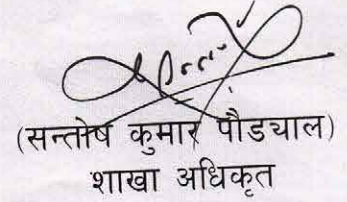 (सन्तोष कुमार पौड्याल)
शाखा अधिकृत